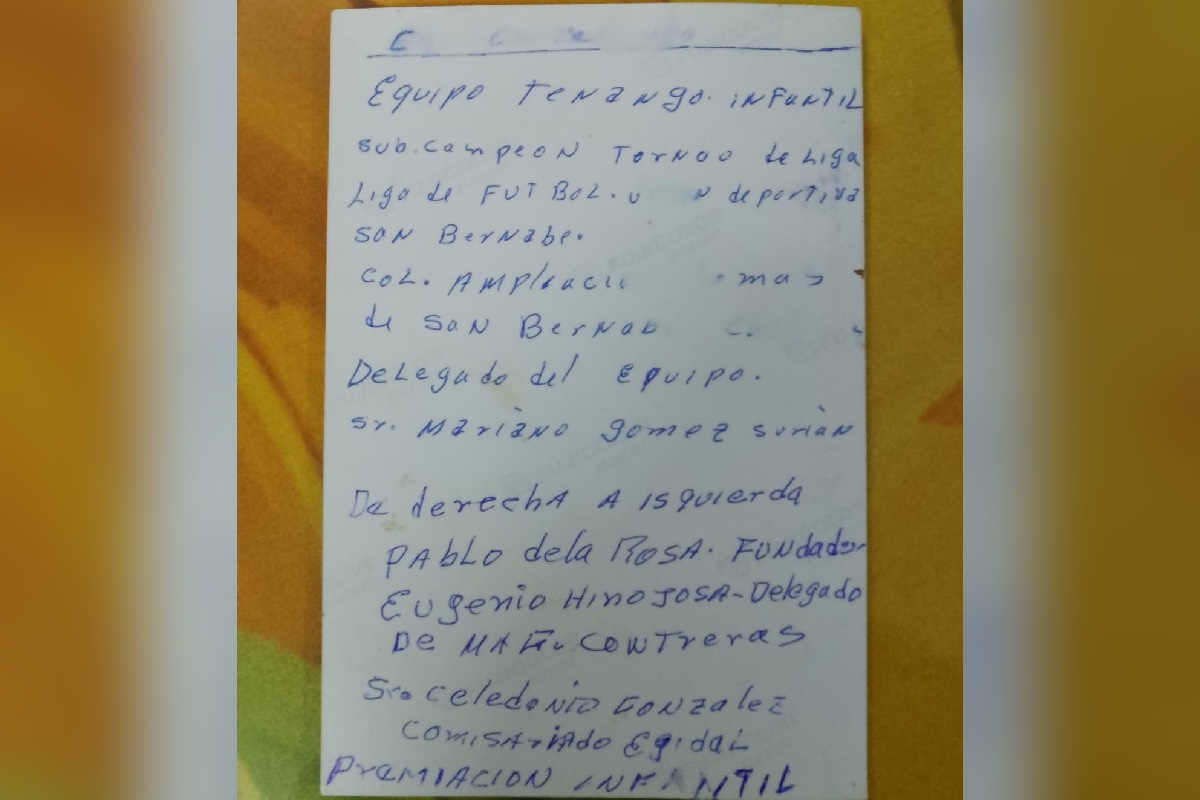 Equipo Tenango. iNFaNTiL
sub.campeoN Tornoo de Liga
Liga de FUTBOL. deportiva
SaN BerNabe.
COL. mas
de SaN BerNab
DeLegado del Equipo.
sr. Mariàno gomez
De derecha A isquierda
PAbLO dela ROSA. FUNdador
EUgeniO HinoJOSA-Delegado
De MAG. CONTreras
Sr. celedoniO GONzalez
comisAriAdo EgidaL
PremiACION INFANTIL